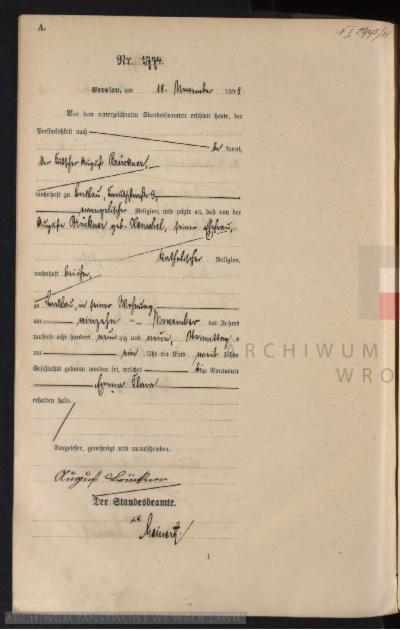 A.
Nr. 2774.
Breslau, am 18. November 189
Vor dem unterzeichneten Standesbeamten erschien heute, der
Persönlichkeit nach
be kannt,
der Kutscher August Brückner,
wohnhaft zu Breslau,
evangelischer Religion, und zeigte an, daß von der
Auguste Brückner geb. seiner Ehefrau,
katholischer Religion,
wohnhaft bei ihm,
zu Breslau, in seiner Wohnung
am November des Jahres
tausend acht hundert neunzig und Vormittags
um ein Uhr ein Kind weib lichen
Geschlechts geboren worden sei, welches die Vornamen
Emma Clara
erhalten habe.
Vorgelesen, genehmigt und unterschrieben.
August Brückner
Der Standesbeamte.
1
ARCHIWUM
WRO
ARCHIWUM PAŃSTWOWE WE WROCŁAWIU